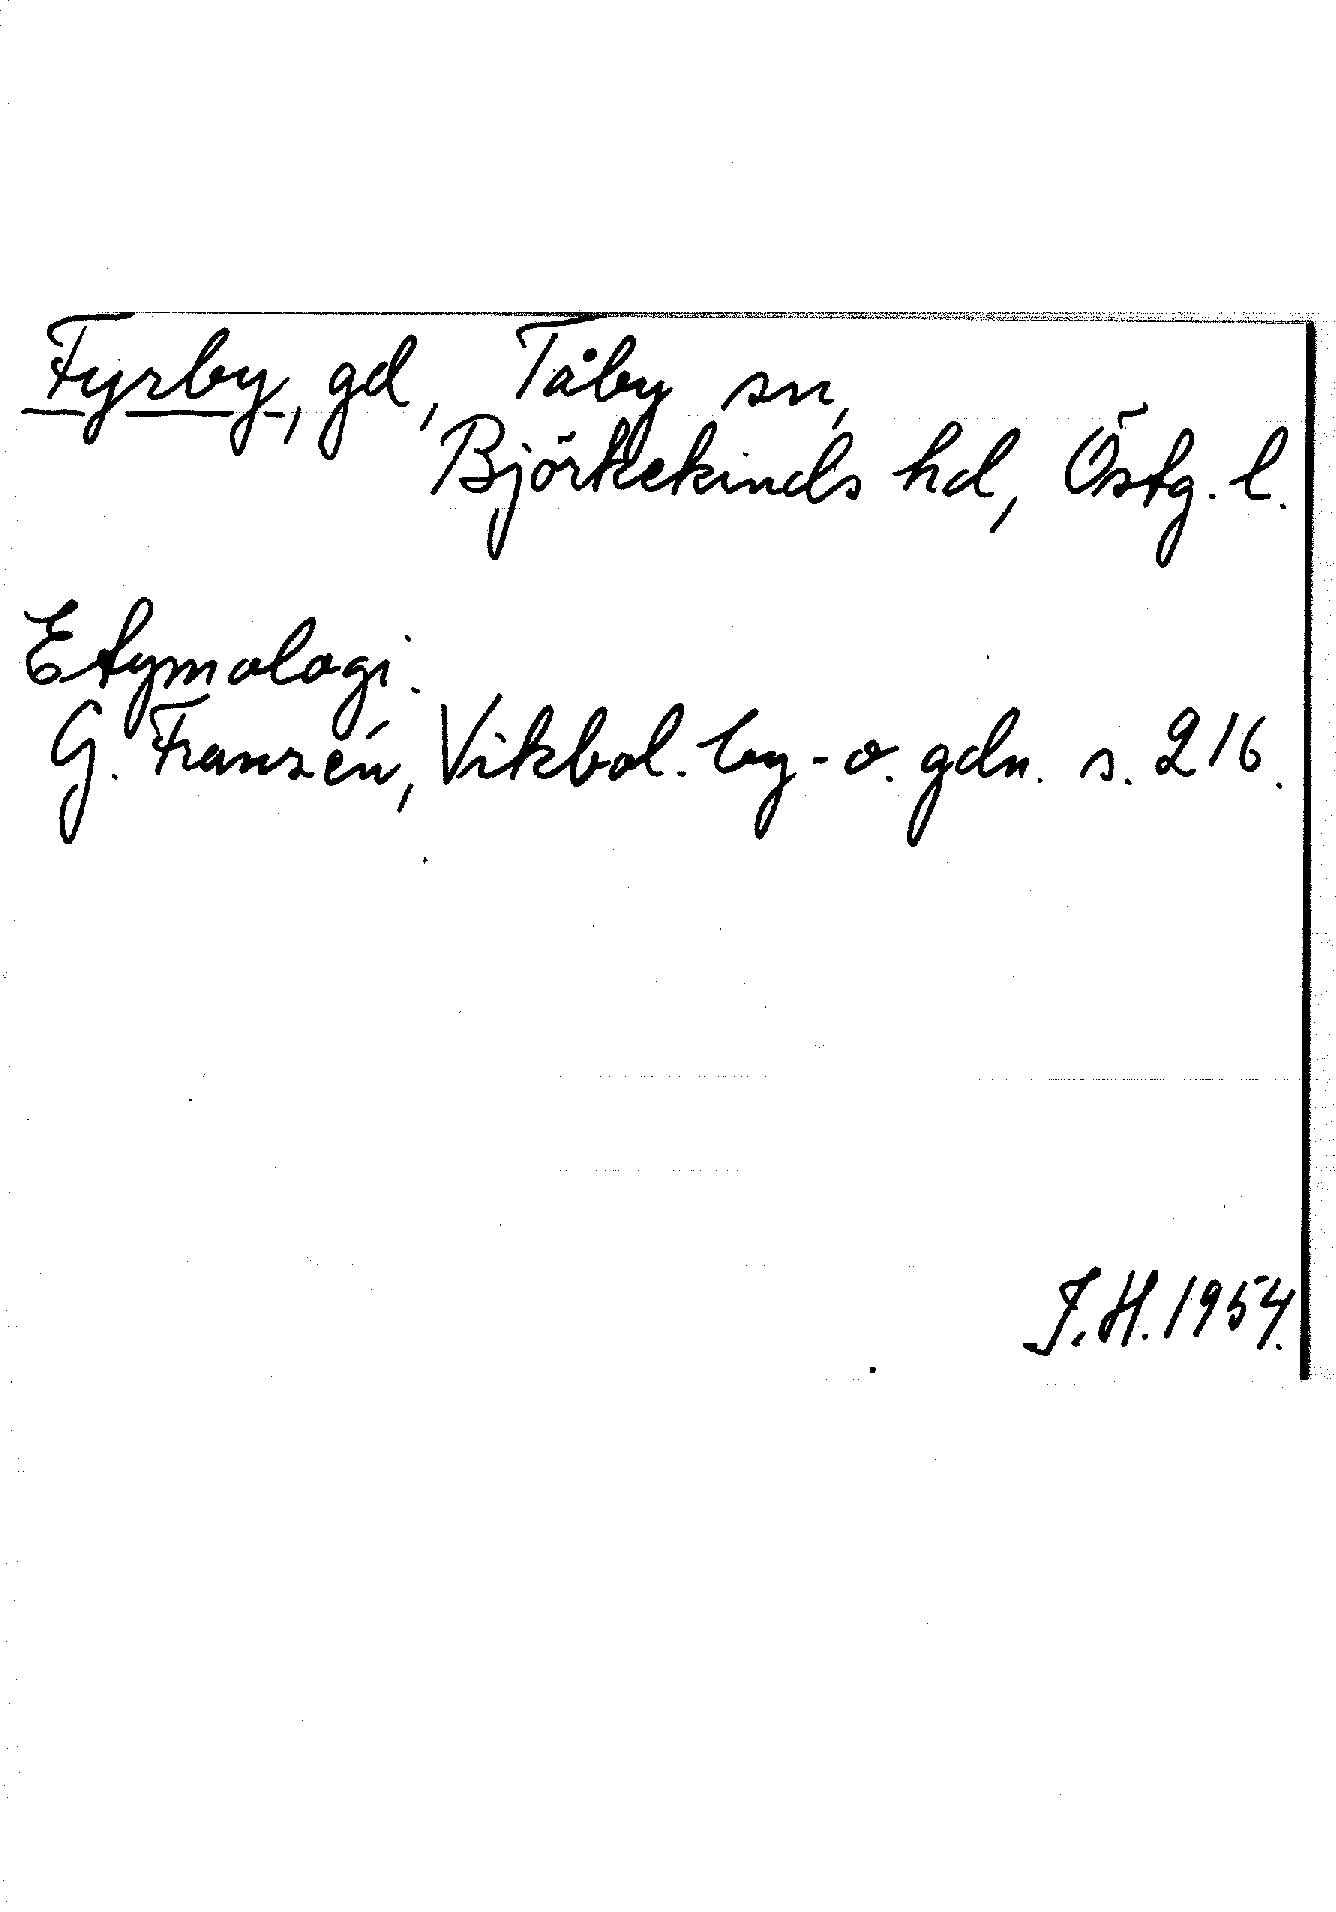 Fyrby, gd, Tåby sn,
Björkekinds hd, Östg. l.
Etymologi.
G. Franzén, Vikbol. by- o. gdn. s. 216.
J.H. 1954.